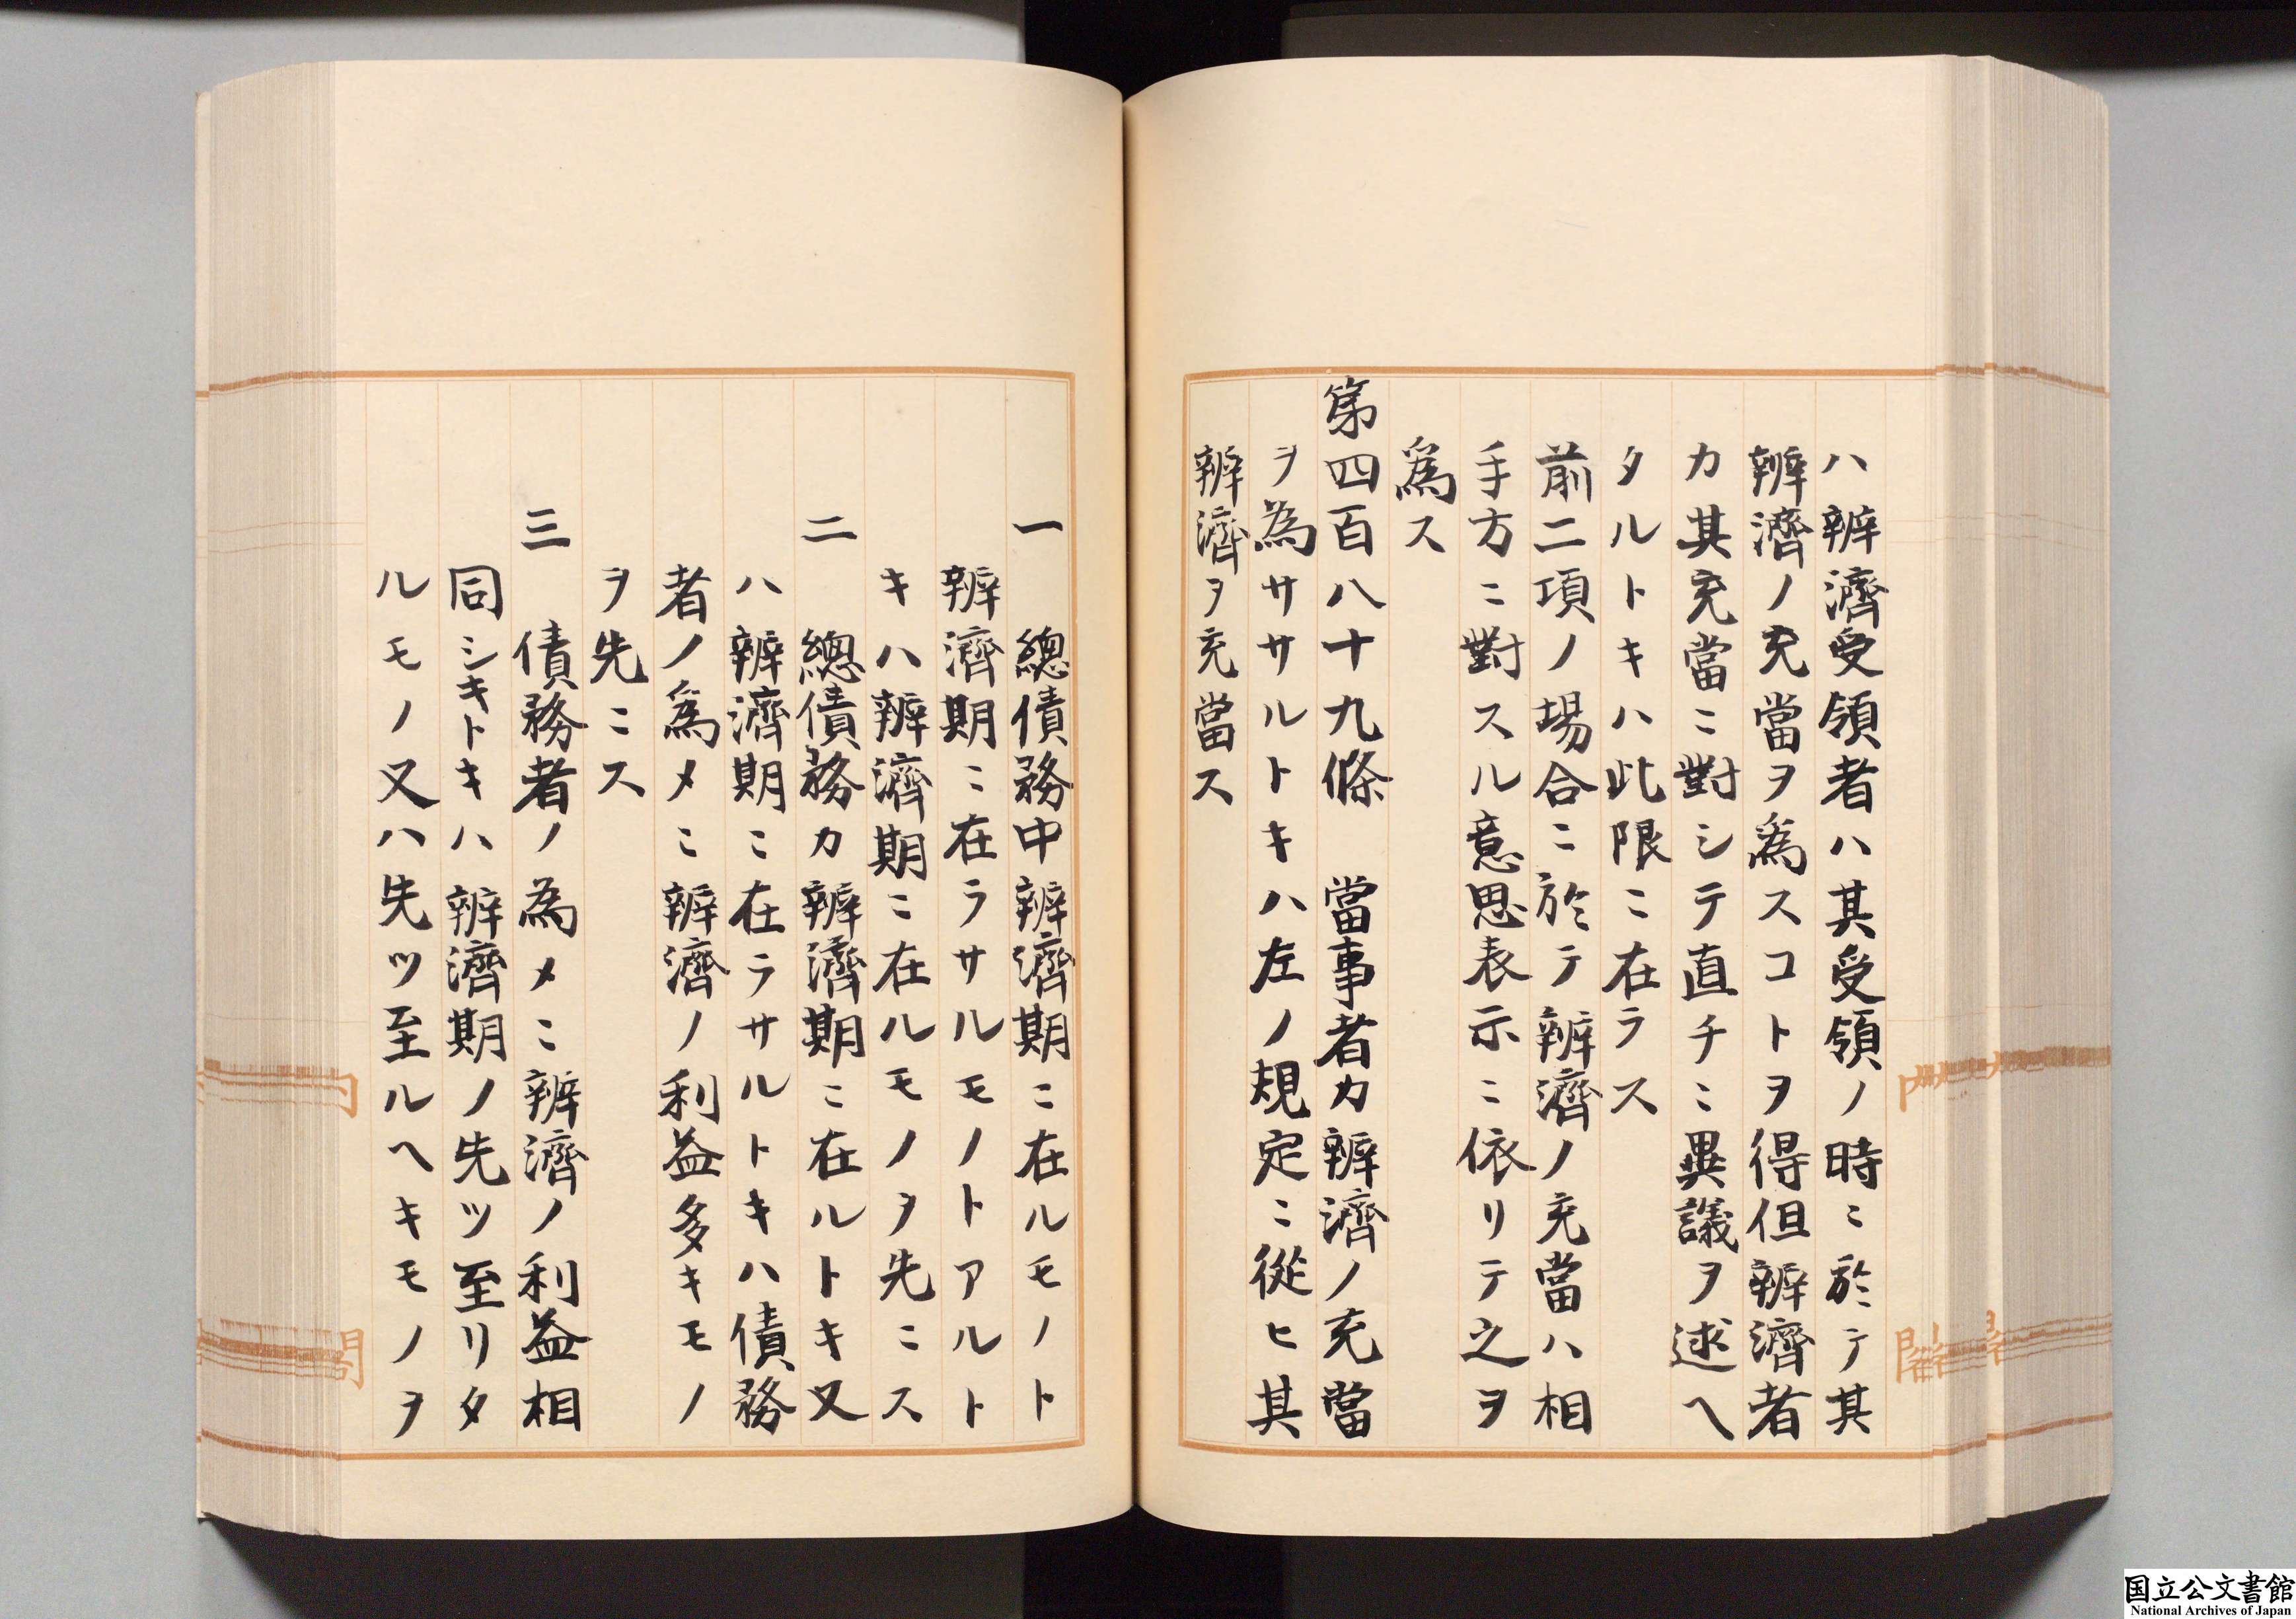 ハ辨濟受領者ハ其受領ノ時ニ於テ其
辨濟ノ充當ヲ爲スコトヲ得但辨濟者
カ其充當ニ對シテ直チニ異議ヲ述ヘ
タルトキハ此限ニ在ラス
前二項ノ場合ニ於テ辨濟ノ充當ハ相
手方ニ對スル意思表示ニ依リテ之ヲ
爲ス
第四百八十九條　當事者カ辨濟ノ充當
ヲ為ササルトキハ左ノ規定ニ從ヒ其
辨濟ヲ充當ス
一　總債務中辨濟期ニ在ルモノト
辨濟期ニ在ラサルモノトアルト
キハ辨濟期ニ在ルモノヲ先ニス
二　總債務カ辨濟期ニ在ルトキ又
ハ辨濟期ニ在ラサルトキハ債務
者ノ爲メニ辨濟ノ利益多キモノ
ヲ先ニス
三　債務者ノ為メニ辨濟ノ利益相
同シキトキハ辨濟期ノ先ツ至リタ
ルモノ又ハ先ツ至ルヘキモノヲ
内
閣
国立公文書館
National Archives of Japan